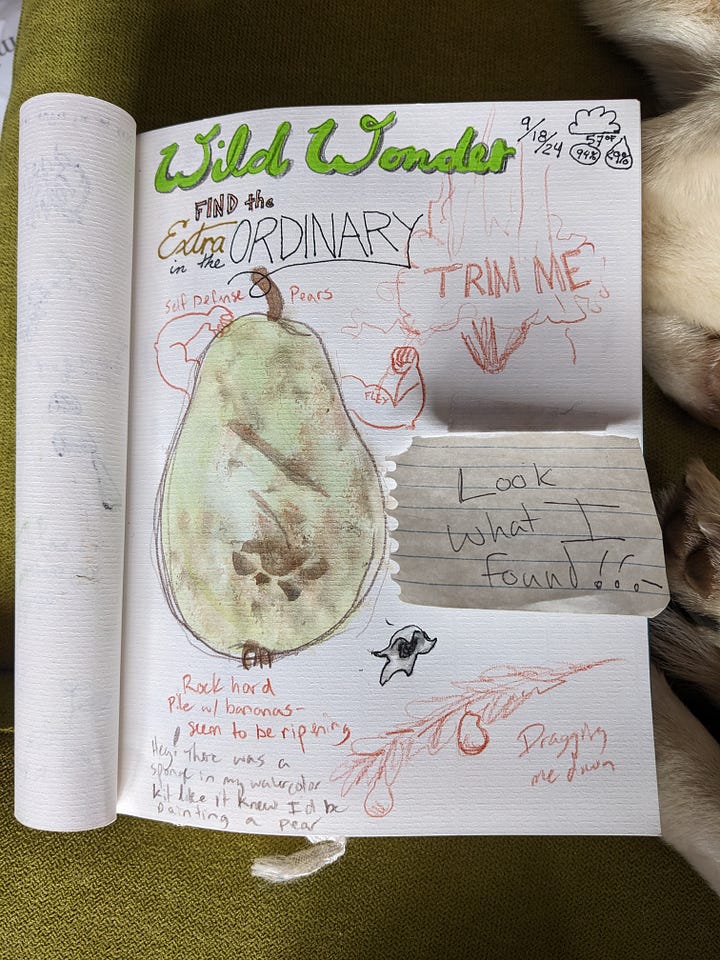 Wild Wonder
9/18/24
57°F
94%
FIND the
Extra
in the ORDINARY
TRIM ME
Self Defense Pears
FLEX
Look
what I
found!!!
Rock hard
Pile w/ bananas-
seem to be ripening
Hey! There was a
sponge in my watercolor
kit like it knew I'd be
painting a pear
Dragging
me down